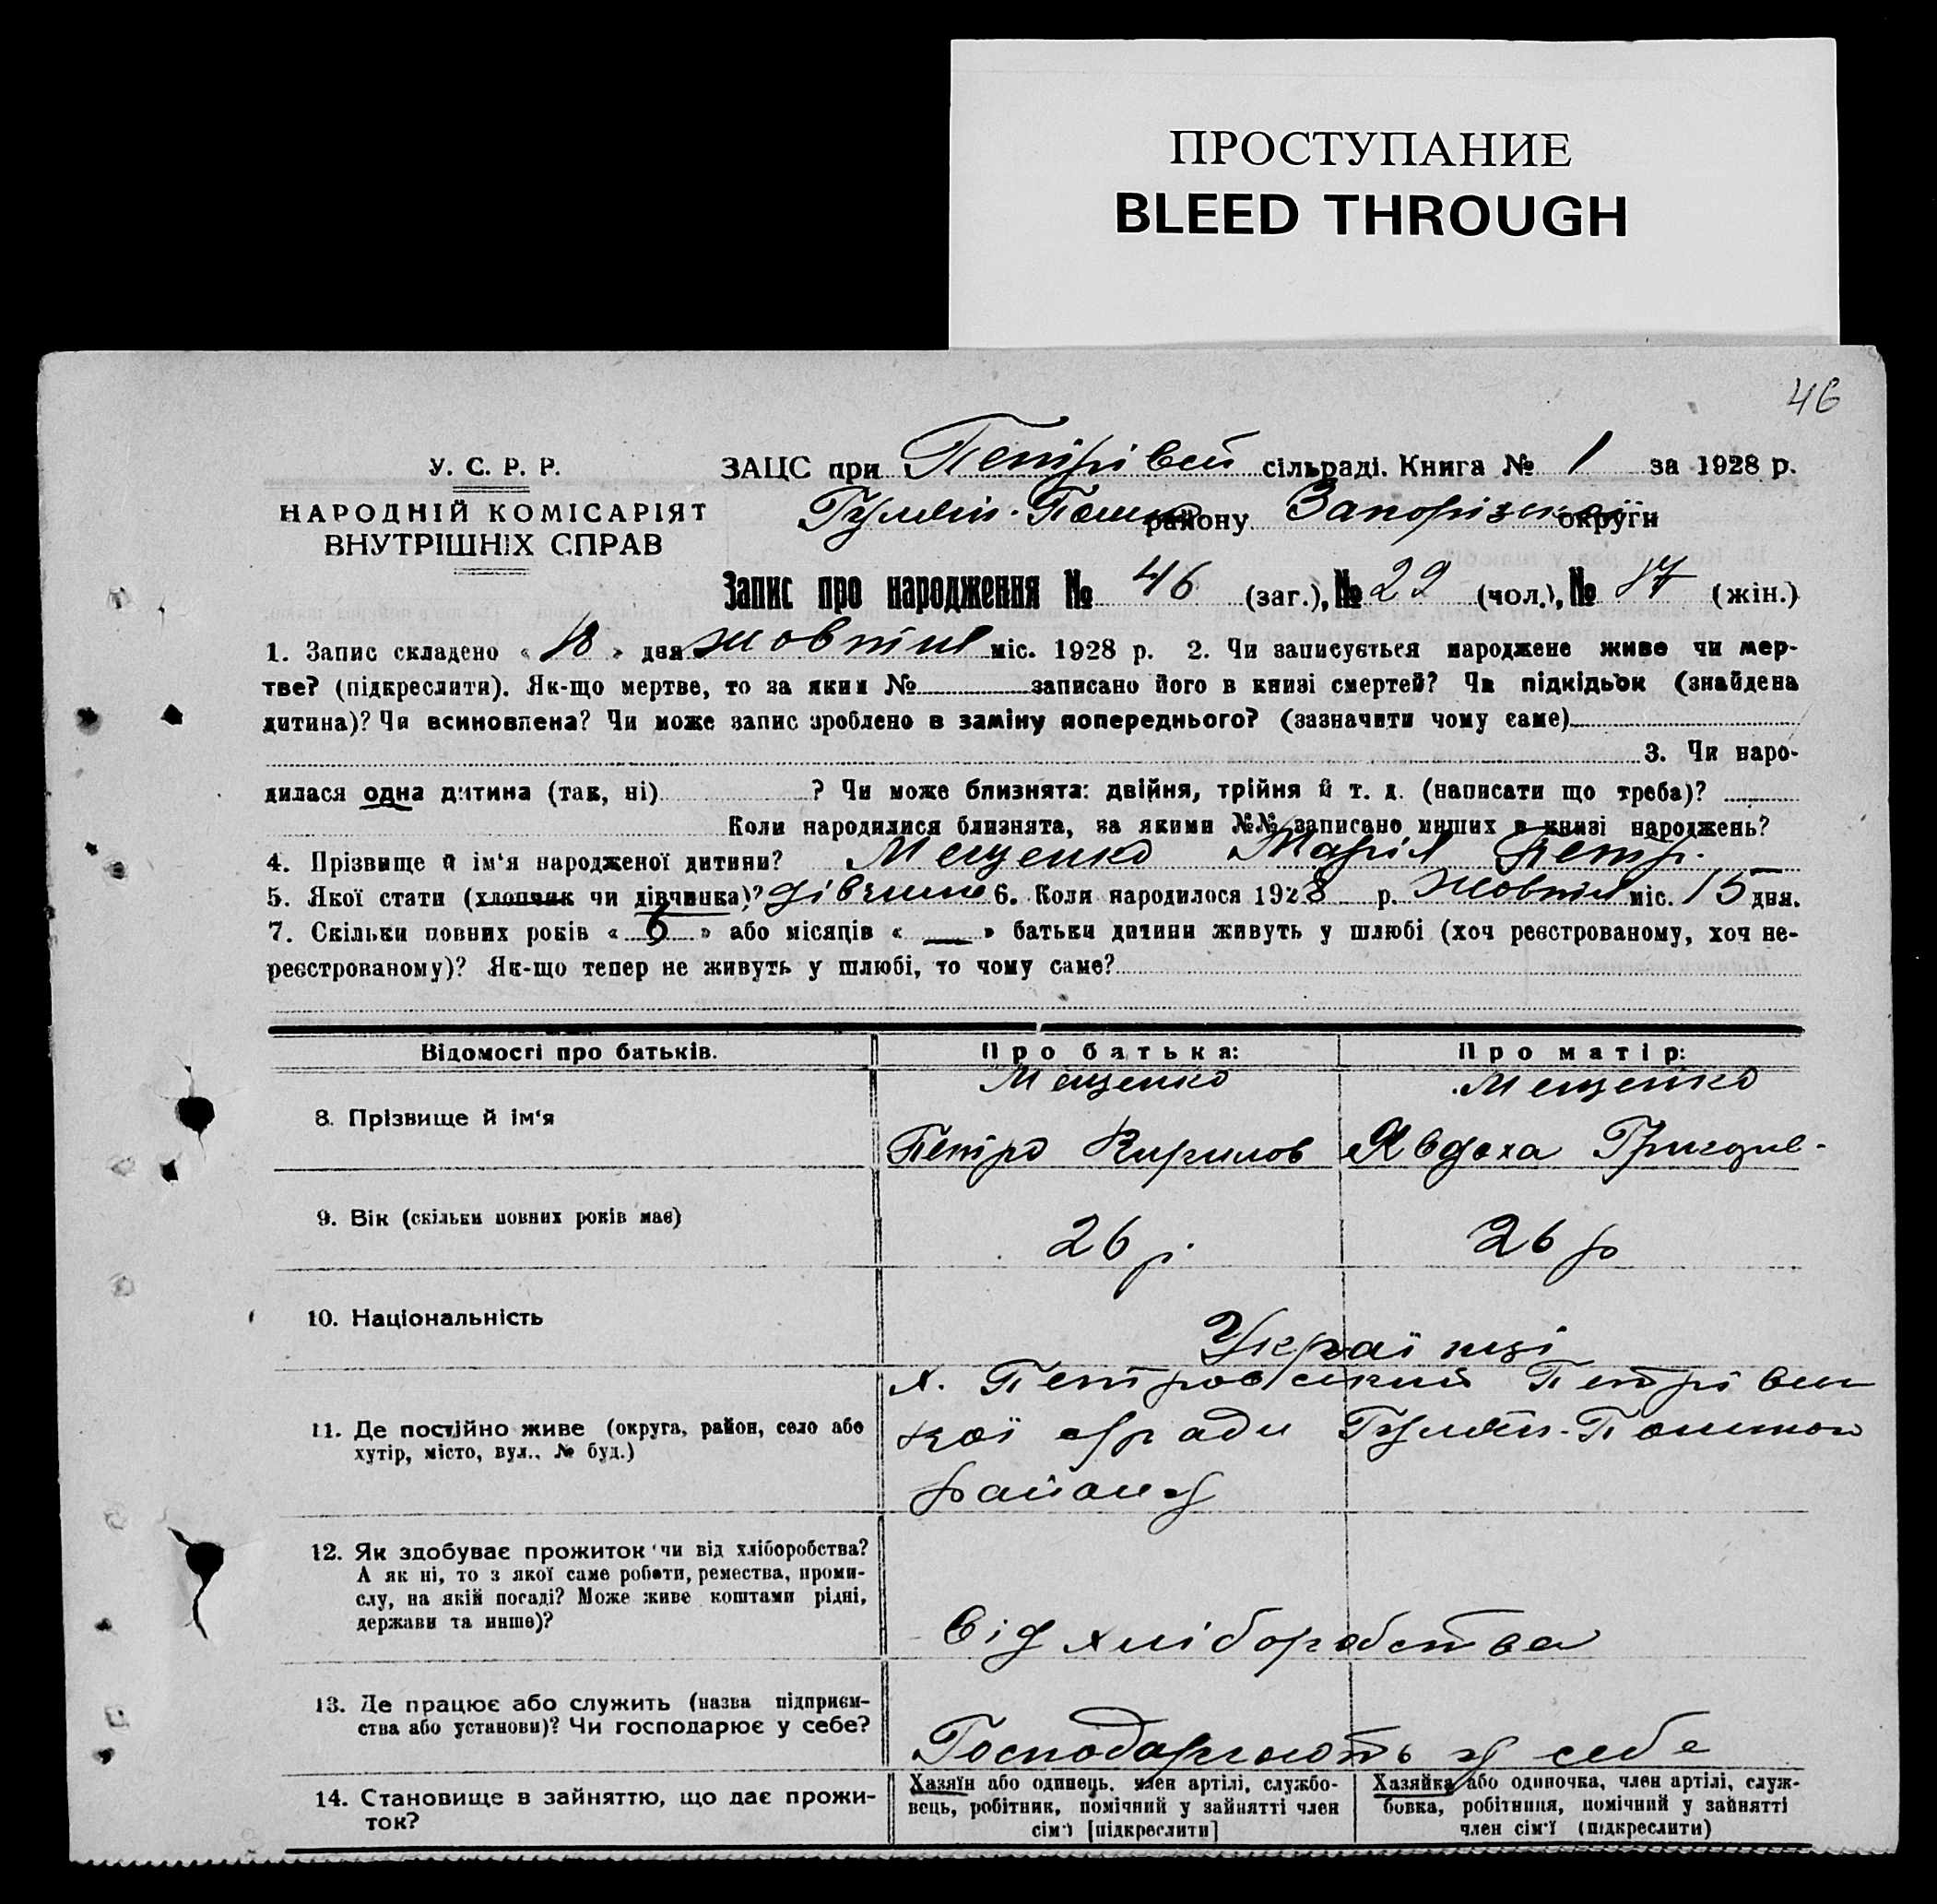 ПРОСТУПАНИЕ
BLEED THROUGH
46
У. С. Р. Р.
НАРОДНІЙ КОМІСАРІЯТ
ВНУТРІШНІХ СПРАВ
ЗАЦС при Петрівській сільраді. Книга № 1 за 1928 р.
Гуляй-Польськ району Запорізької округи
Запис про народження № 46 (заг.), № 29 (чол.), № 17 (жін.)
1. Запис складено « 18 » дня жовтня міс. 1928 р. 2. Чи записується народжене живе чи мер-
тве? (підкреслити). Як-що мертве, то за яким № записано його в книзі смертей? Чи підкідьок (знайдена
дитина)? Чи всиновлена? Чи може запис зроблено в заміну попереднього? (зазначити чому саме)
3. Чи наро-
дилася одна дитина (так, ні) ? Чи може близнята: двійня, трійня й т. д. (написати що треба)?
Коли народилися близнята, за якими №№ записано инших в книзі народжень?
4. Прізвище й ім'я народженої дитини? Мещенко Марія Петр.
5. Якої стати (хлопчик чи дівчинка)? дівчина 6. Коли народилося 1928 р. жовтня міс. 15 дня.
7. Скільки повних років « 6 » або місяців « — » батьки дитини живуть у шлюбі (хоч реєстрованому, хоч не-
реєстрованому)? Як-що тепер не живуть у шлюбі, то чому саме?
Відомості про батьків.
Про батька:
Про матір:
8. Прізвище й ім'я
Мещенко
Петро Кирилов
Мещенко
Явдоха Григорів-
9. Вік (скільки повних років має)
26 р.
26 р
10. Національність
Українці
11. Де постійно живе (округа, район, село або
хутір, місто, вул., № буд.)
х. Петровський Петрівсь
кої с/ради Гуляй-Польського
району
12. Як здобуває прожиток чи від хліборобства?
А як ні, то з якої саме роботи, ремества, проми-
слу, на якій посаді? Може живе коштами рідні,
держави та инше)?
Від хліборобства
13. Де працює або служить (назва підприєм-
ства або установи)? Чи господарює у себе?
Господарюють у себе
14. Становище в зайняттю, що дає прожи-
ток?
Хазяїн або одинець, член артілі, службо-
вець, робітник, помічний у зайнятті член
сім'ї [підкреслити]
Хазяйка або одиночка, член артілі, служ-
бовка, робітниця, помічний у зайнятті
член сім'ї (підкреслити)